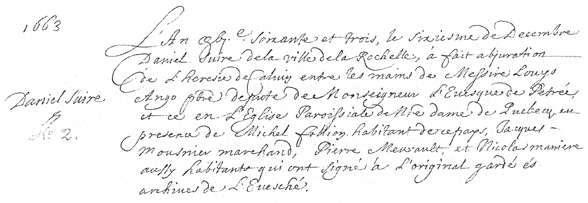 1663
L'An mil vj.c soixante et trois, le sixiesme de Decembre
Daniel Suire de la ville de la Rochelle, à fait abjuration
de L'heresie de Calvin entre les mains de Messire Louys
Ango pbre deputé de Monseigneur L'Evesque de Petrée
et ce en L'Eglise Paroissiale de Nre dame de Quebecq en
presence de Michel fillion habitant de ce pays, Jacques
Mousnier marchand, Pierre Meurault, et Nicolas maniere
aussy habitants qui ont signé à L'original gardé és
archives de L'Evesché.
Daniel Suire
2.